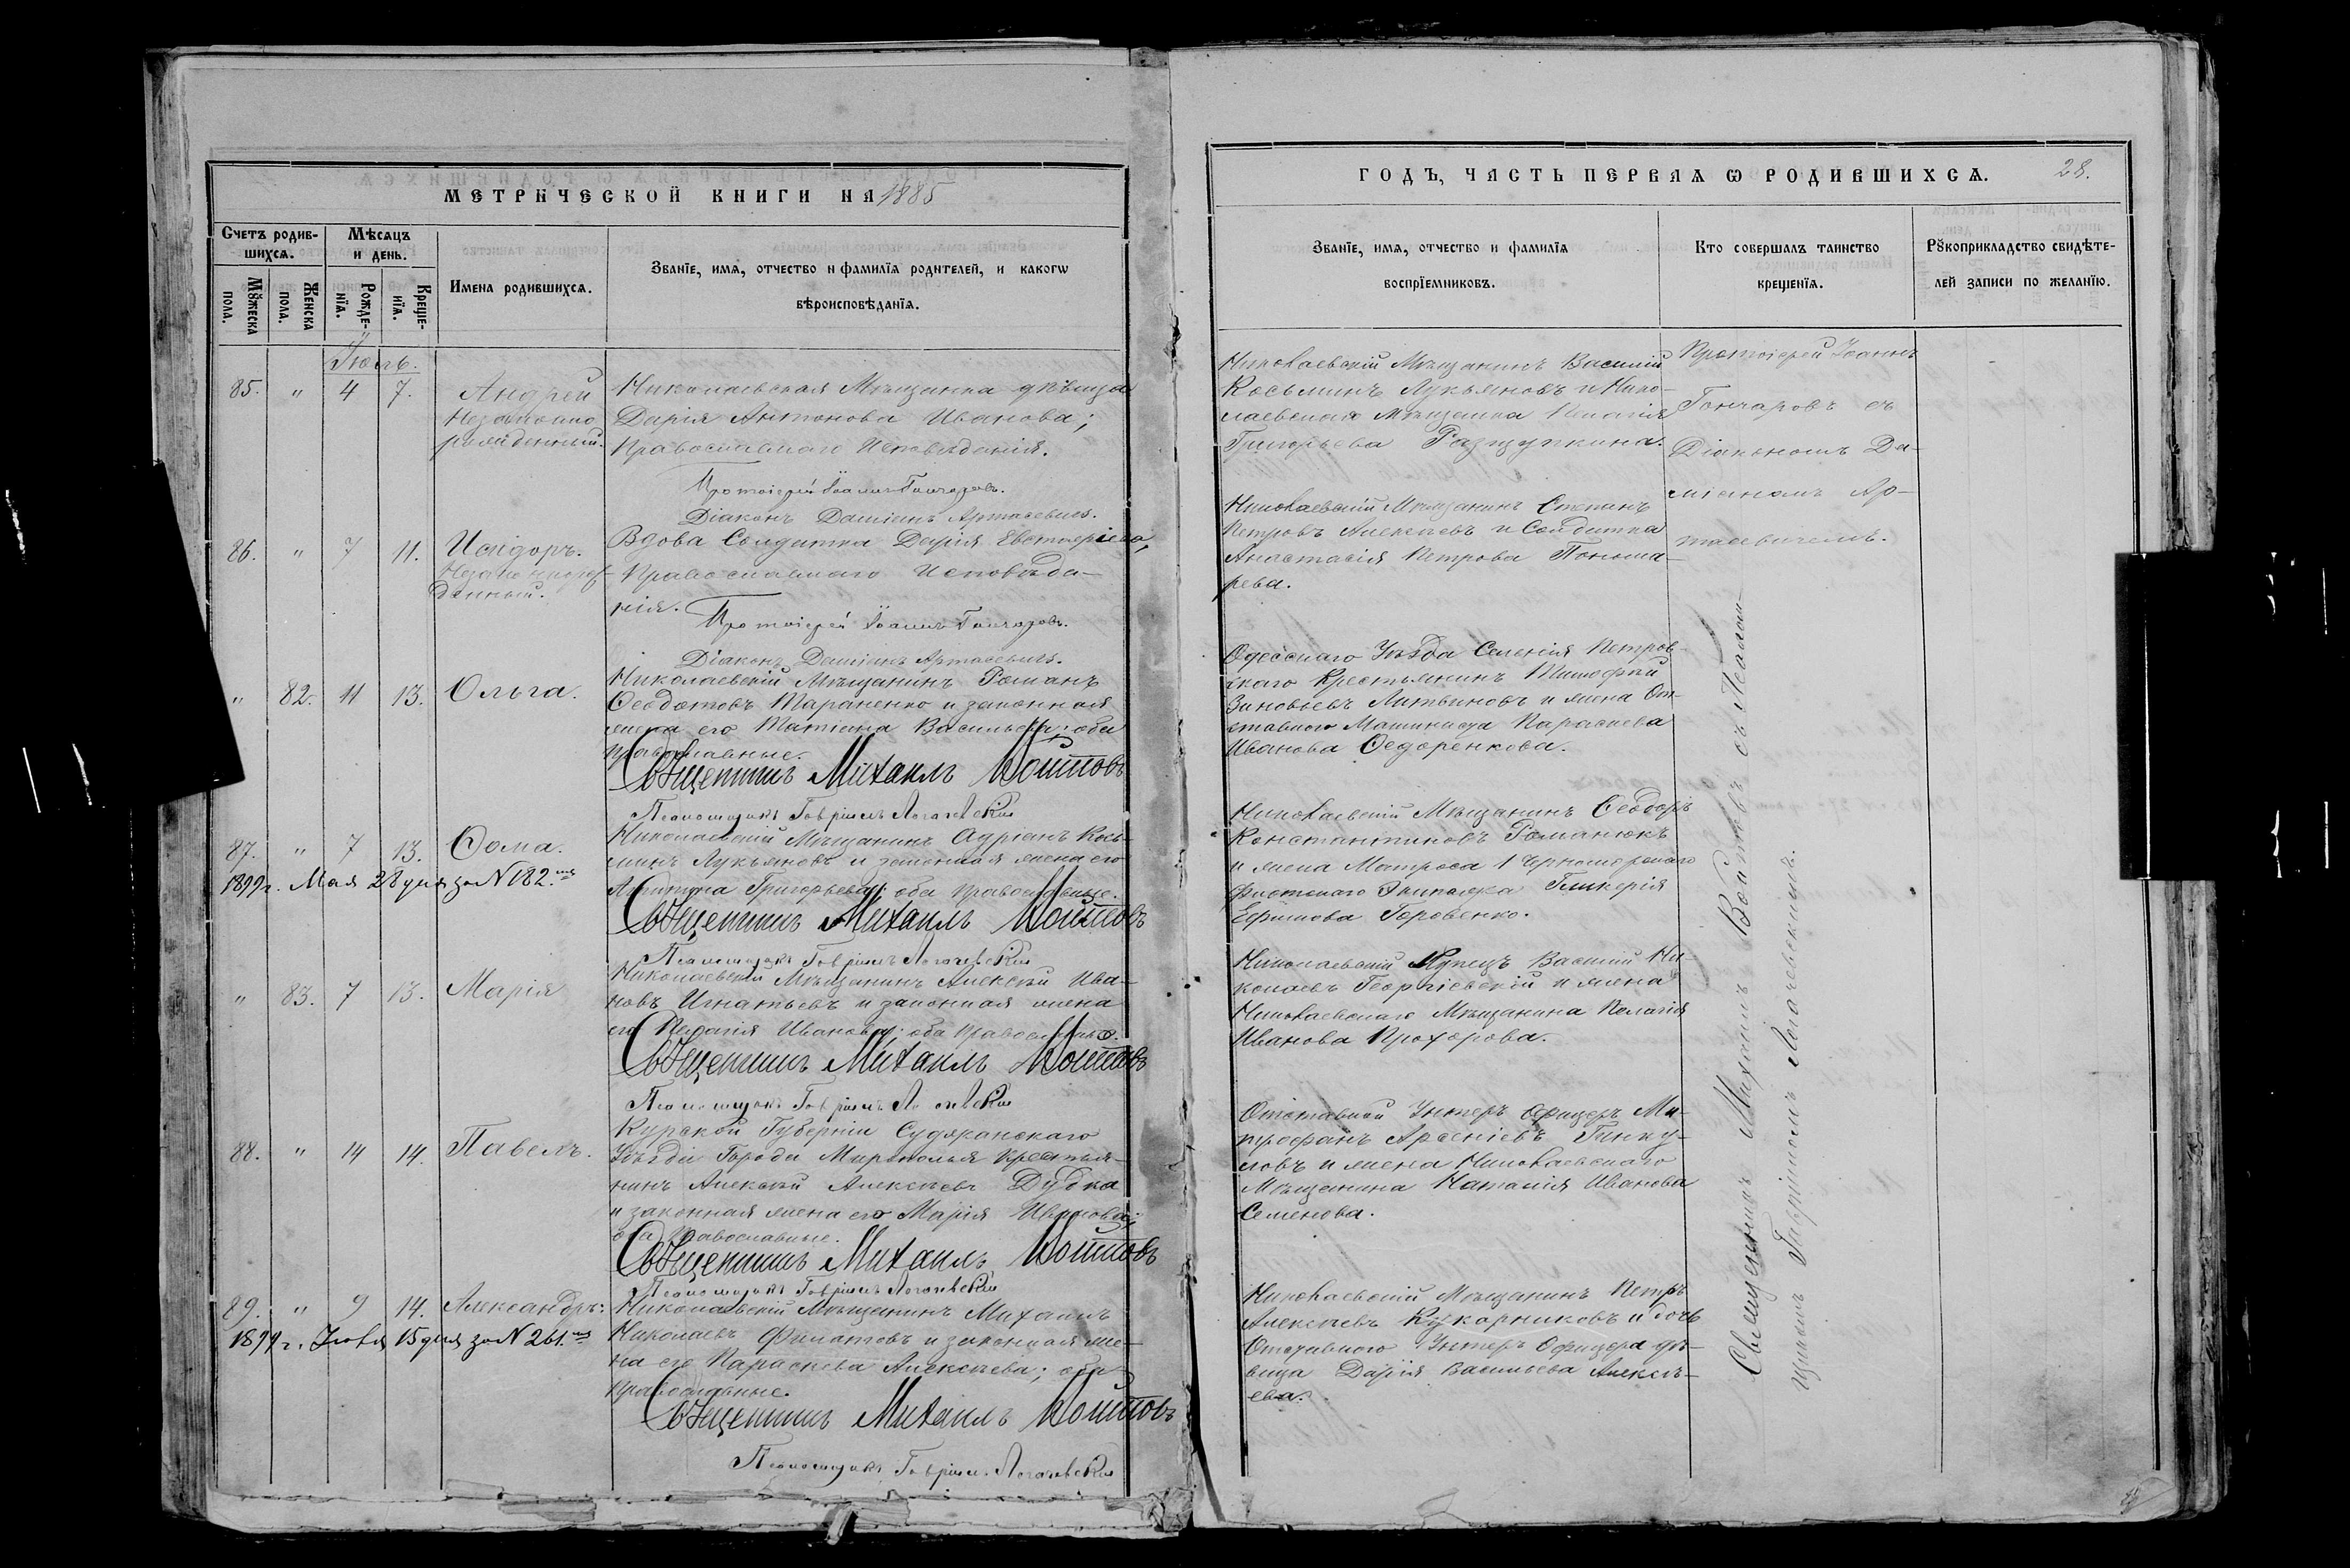 МЕТРИЧЕСКОЙ КНИГИ НА 1885
Счетъ родив-
шихся.
Мѣсяцъ
и день.
Мужеска
пола.
Женска
пола.
Рожде-
нія.
Креще-
нія.
Имена родившихся.
Званіе, имя, отчество и фамилія родителей, и какогѡ
вѣроисповѣданія.
Іюль.
85. " 4 7. Андрей
Незаконно
рожденный.
Николаевская Мѣщанка дѣвица
Дарія Антонова Иванова;
Православнаго Исповѣданія.
Протоіерей Іоаннъ Гончаровъ.
Діаконъ Даміанъ Артасевичъ.
86. " 7 11. Исидоръ.
Незаконнорож-
денный.
Вдова Солдатка Дарія Евстафіева,
Православнаго Исповѣда-
нія.
Протоіерей Іоаннъ Гончаровъ.
Діаконъ Даміанъ Артасевичъ.
" 82. 11 13. Ольга.
Николаевскій Мѣщанинъ Романъ
Ѳеодотовъ Тараненко и законная
жена его Татіана Васильева; оба
православные.
Священникъ Михаилъ Войтовъ
Псаломщикъ Гавріилъ Логачевскій
87. " 7 13. Ѳома.
1899 г. Мая 28 дня за N 182.
Николаевскій Мѣщанинъ Адріанъ Кось-
минъ Лукьяновъ и законная жена его
Акилина Григорьева; оба православные.
Священникъ Михаилъ Войтовъ
Псаломщикъ Гавріилъ Логачевскій
" 83. 7 13. Марія
Николаевскій Мѣщанинъ Алексѣй Ива-
новъ Игнатьевъ и законная жена
его Пелагія Иванова; оба православные.
Священникъ Михаилъ Войтовъ
Псаломщикъ Гавріилъ Логачевскій
88. " 14 14. Павелъ.
Курской Губерніи Суджанскаго
Уѣзда Города Мирополья Крестья-
нинъ Алексѣй Алексѣевъ Дубка
и законная жена его Марія Иванова;
оба Православные.
Священникъ Михаилъ Войтовъ
Псаломщикъ Гавріилъ Логачевскій
89. " 9 14. Александръ.
1899 г. Іюля 15 дня за N 261.
Николаевскій Мѣщанинъ Михаилъ
Николаевъ Филатовъ и законная же-
на его Параскева Алексѣева; оба
православные.
Священникъ Михаилъ Войтовъ
Псаломщикъ Гавріилъ Логачевскій
ГОДЪ, ЧАСТЬ ПЕРВАЯ Ѡ РОДИВШИХСЯ. 28.
Званіе, имя, отчество и фамилія
воспріемниковъ.
Кто совершалъ таинство
крещенія.
Рукоприкладство свидѣте-
лей записи по желанію.
Николаевскій Мѣщанинъ Василій
Косьминъ Лукьяновъ и Нико-
лаевская Мѣщанка Пелагія
Григорьева Разщупкина.
Протоіерей Іоаннъ
Гончаровъ съ
Діакономъ Да-
міаномъ Ар-
тасевичемъ.
Николаевскій Мѣщанинъ Степанъ
Петровъ Алексѣевъ и Солдатка
Анастасія Петрова Понома-
рева.
Одесскаго Уѣзда Селенія Петров-
скаго Крестьянинъ Тимофей
Зиновьевъ Литвиновъ и жена От-
ставного Машиниста Параскева
Иванова Ѳедоренкова.
Николаевскій Мѣщанинъ Ѳеодоръ
Константиновъ Романюкъ
и жена Матроса 1 Черноморскаго
Флотскаго Экипажа Гликерія
Ефимова Горовенко.
Николаевскій Купецъ Василій Ни-
колаевъ Георгіевскій и жена
Николаевскаго Мѣщанина Пелагія
Иванова Прохорова.
Отставной Унтеръ Офицеръ Ми-
трофанъ Арсеніевъ Гинку-
ловъ и жена Николаевскаго
Мѣщанина Наталія Иванова
Семенова.
Николаевскій Мѣщанинъ Петръ
Алексѣевъ Кукарниковъ и дочь
Отставного Унтеръ Офицера дѣ-
вица Дарія Васильева Алексѣ-
ева.
Священникъ Михаилъ Войтовъ съ Псалом-
щикомъ Гавріиломъ Логачевскимъ.